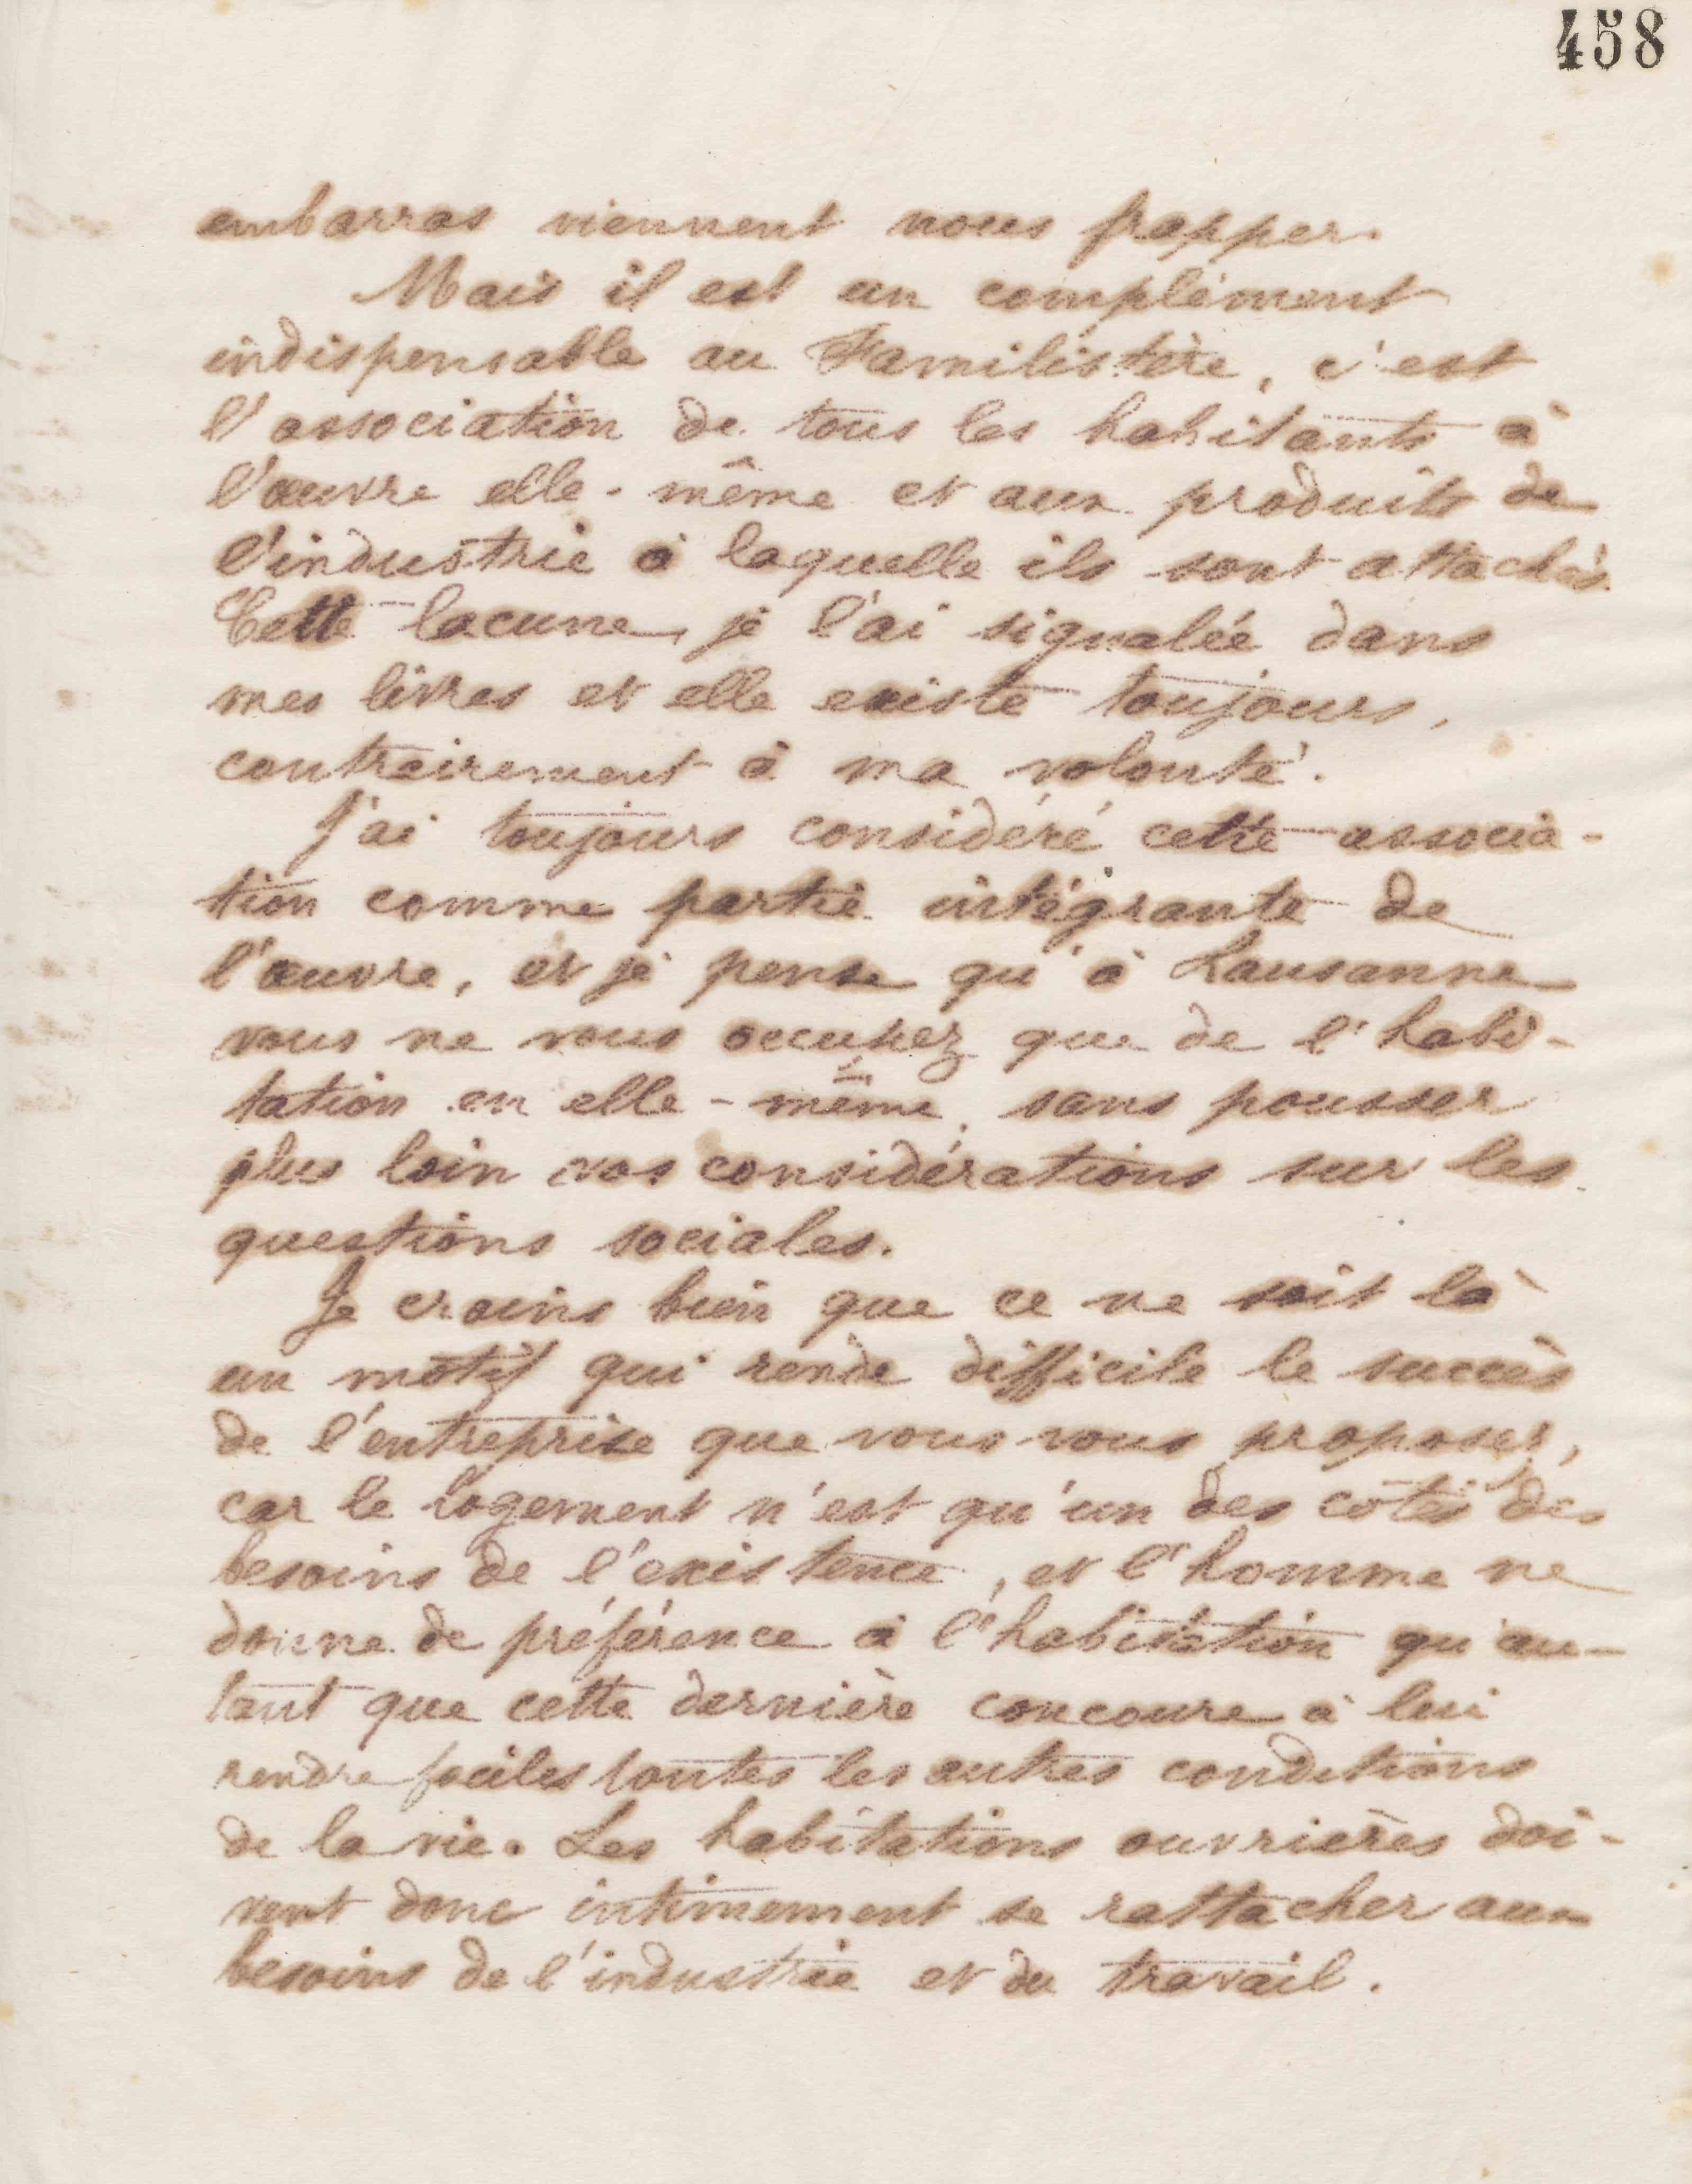 458
embarras viennent nous frapper.
Mais il est un complément
indispensable au Familistère, c'est
l'association de tous les habitants à
l'œuvre elle-même et aux produits de
l'industrie à laquelle ils sont attachés.
Cette lacune, je l'ai signalée dans
mes livres et elle existe toujours,
contrairement à ma volonté.
J'ai toujours considéré cette associa-
tion comme partie intégrante de
l'œuvre, et je pense qu'à Lausanne
vous ne vous occupez que de l'habi-
tation en elle-même, sans pousser
plus loin vos considérations sur les
questions sociales.
Je crains bien que ce ne soit là
un motif qui rende difficile le succès
de l'entreprise que vous vous proposez,
car le logement n'est qu'un des côtés des
besoins de l'existence, et l'homme ne
donne de préférence à l'habitation qu'au-
tant que cette dernière concoure à lui
rendre faciles toutes les autres conditions
de la vie. Les habitations ouvrières doi-
vent donc intimement se rattacher aux
besoins de l'industrie et du travail.